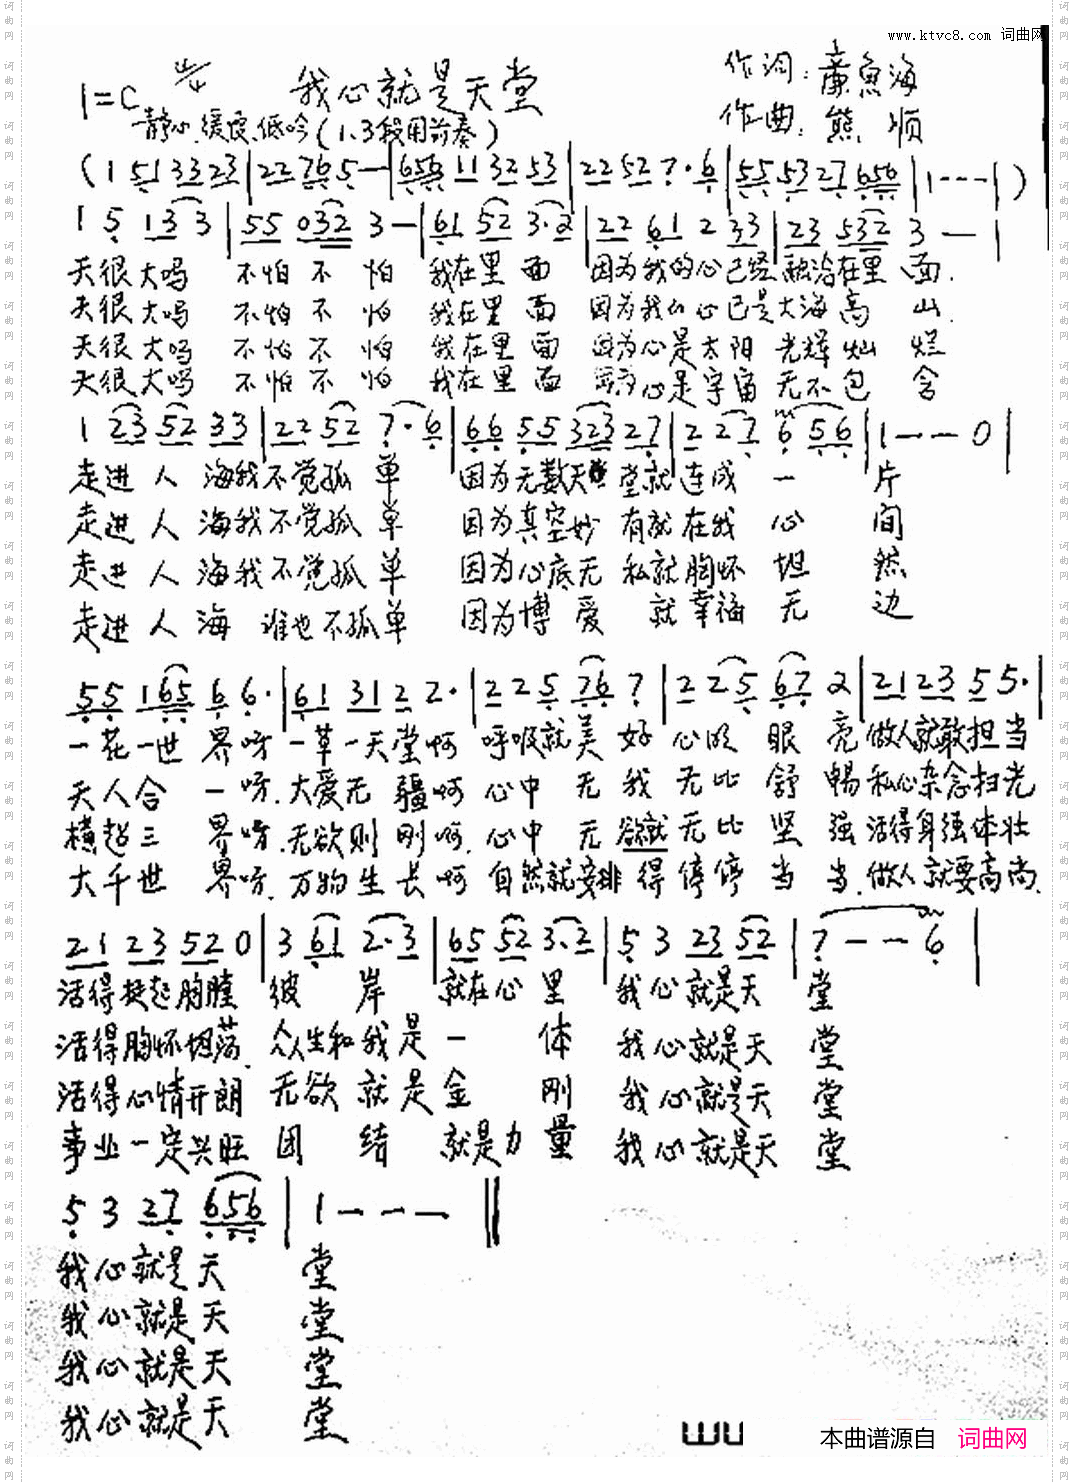 www.ktvc8.com 词曲网
我心就是天堂
作词:廉魚海
1=C 4/4
作曲:熊顺
静心、缓慢、低吟(1.3段用前奏)
(1 51 33 23|22 76 5—|656 11 32 53|22 52 7·6|55 53 27 656|1---|)
1 5 13 3|55 032 3—|61 52 3·2|22 61 2 33|23 532 3—|
天很大吗 不怕不怕 我在里面 因为我的心已经融洽在里面.
天很大吗 不怕不怕 我在里面 因为我的心已是大海高山.
天很大吗 不怕不怕 我在里面 因为心是太阳光辉灿烂
天很大吗 不怕不怕 我在里面 因为心是宇宙无不包含
1 23 52 33|22 52 7·6|66 55 323 27|2 27 6 56|1--0|
走进人海我不觉孤单 因为无数天堂就连成一片
走进人海我不觉孤单 因为真空妙有就在我心间
走进人海我不觉孤单 因为心底无私就胸怀坦然
走进人海谁也不孤单 因为博爱就幸福无边
55 165 6 6·|61 31 2 2·|2 2 5 76 7|2 25 67 2|21 23 5 5·|
一花一世界呀 一草一天堂啊 呼吸就美好 心明眼亮 做人就敢担当
天人合一呀.大爱无疆啊 心中无我 无比舒畅 私心杂念扫光
横超三界呀.无欲则刚啊.心中无欲就无比坚强 活得身强体壮
大千世界呀.万物生长啊 自然就安排得停停当当.做人就要高尚.
21 23 52 0|3 61 2·3|65 52 3·2|5 3 23 52|7--6|
活得挺起胸膛 彼岸就在心里 我心就是天堂
活得胸怀坦荡.众生和我是一体 我心就是天堂
活得心情开朗 无欲就是金刚 我心就是天堂
事业一定兴旺 团结就是力量 我心就是天堂
5 3 27 656|1---||
我心就是天堂
我心就是天堂
我心就是天堂
我心就是天堂
本曲谱源自 词曲网